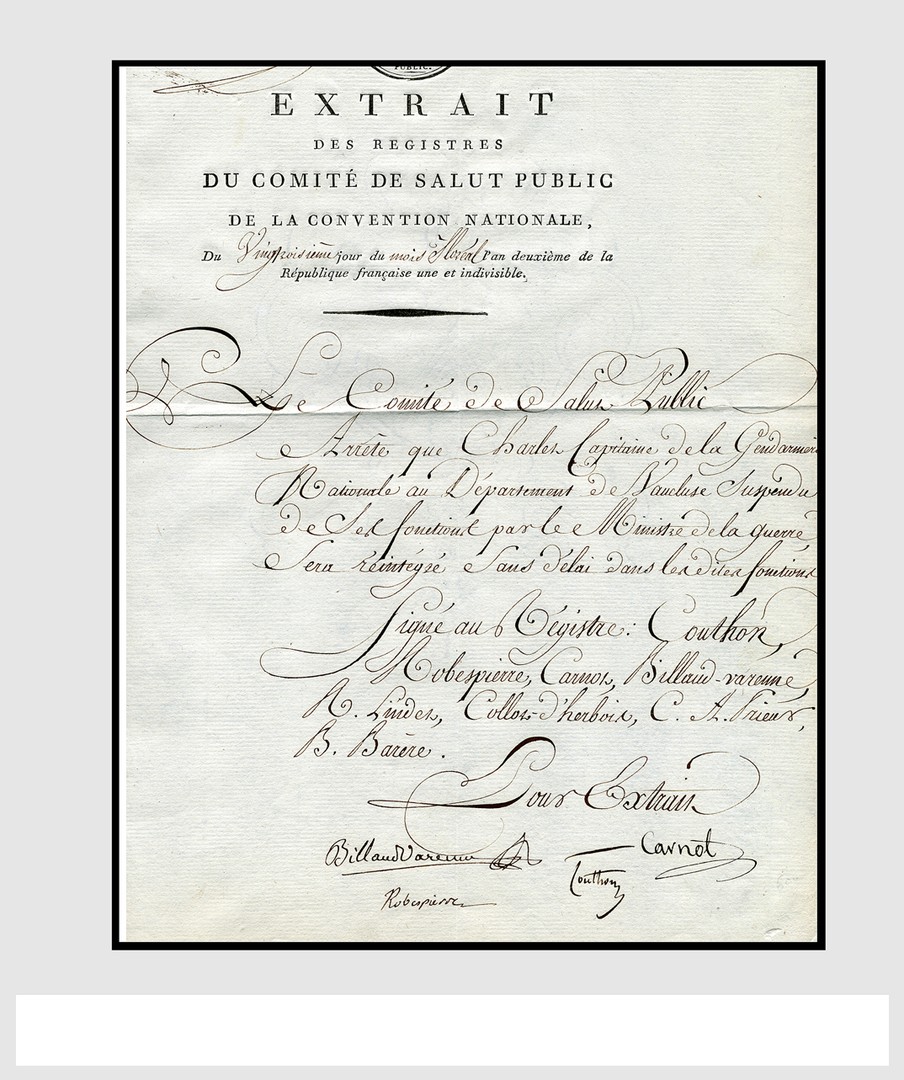 PUBLIC.
EXTRAIT
DES REGISTRES
DU COMITÉ DE SALUT PUBLIC
DE LA CONVENTION NATIONALE,
Du Vingtroisième jour du mois Floréal l'an deuxième de la
République française une et indivisible.
Le Comité de Salut Public
Arrête que Charles Capitaine de la Gendarmerie
Nationale au Département de Vaucluse Suspendu
de Ses fonctions par le Ministre de la guerre
Sera réintégré Sans délai dans les dites fonctions
Signé au Régistre: Couthon,
Robespierre, Carnot, Billaud-varenne,
R. Lindet, Collot-d'herbois, C. A. Prieur,
B. Barère.
Pour Extrait
BillaudVarenne
Carnot
Couthon
Robespierre